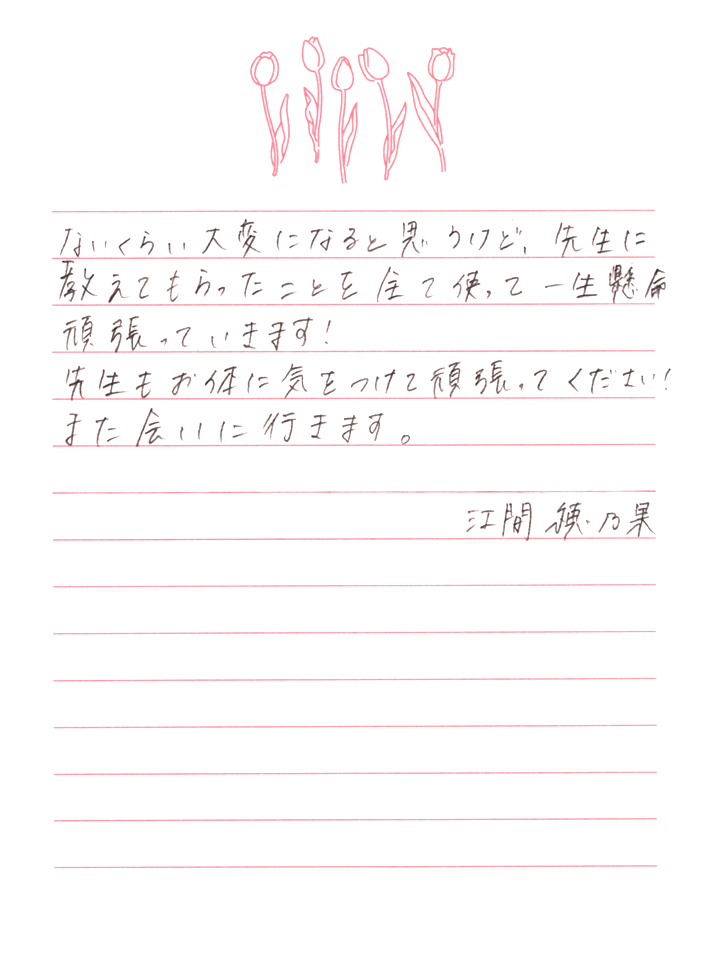 ないくらい大変になると思うけど、先生に
教えてもらったことを全て使って一生懸命
頑張っていきます!
先生もお体に気をつけて頑張ってください!
また会いに行きます。
江間 穂乃果